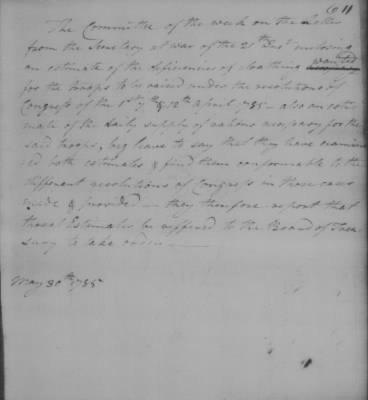 611
The Committee of the week on the Letter
from the Secretary at war of the 21st Inst inclosing
an estimate of the deficiencies of cloathing wanted
for the troops to be raised under the resolutions of
Congress of the 1st, 7th & 12th april, 1785 — also an esti
mate of the daily supply of rations necessary for the
said troops, beg leave to say that they have examin
ed both estimates & find them conformable to the
different resolutions of Congress in those cases
made & provided — they therefore report that
those Estimates be reffered to the Board of Trea
sury to take order —
May 30th 1785